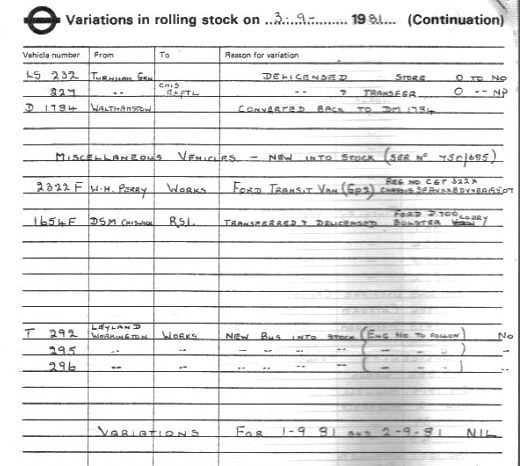 Variations in rolling stock on 3·9· 1981 (Continuation)
Vehicle number From To Reason for variation
LS 232 TURNHAM GRN DELICENSED STORE O TO NO
227 " CHIS RXPTL " & TRANSFER O -- NP
D 1784 WALTHAMSTOW CONVERTED BACK TO DM 1784
MISCELLANEOUS VEHICLES – NEW INTO STOCK (SER Nº 750/655)
2322F W.H. PERRY WORKS FORD TRANSIT VAN REG NO CGT 322X
1654F DSM CHISWICK RSL TRANSFERRED & DELICENSED FORD D700 LORRY BOLSTER
T 292 LEYLAND WORKINGTON WORKS NEW BUS INTO STOCK (ENG NO TO FOLLOW) No
295 -- -- -- -- -- -- ( -- -- -- ) --
296 -- -- -- -- -- -- ( -- -- -- ) --
VARIATIONS FOR 1-9 81 AND 2-9-81 NIL